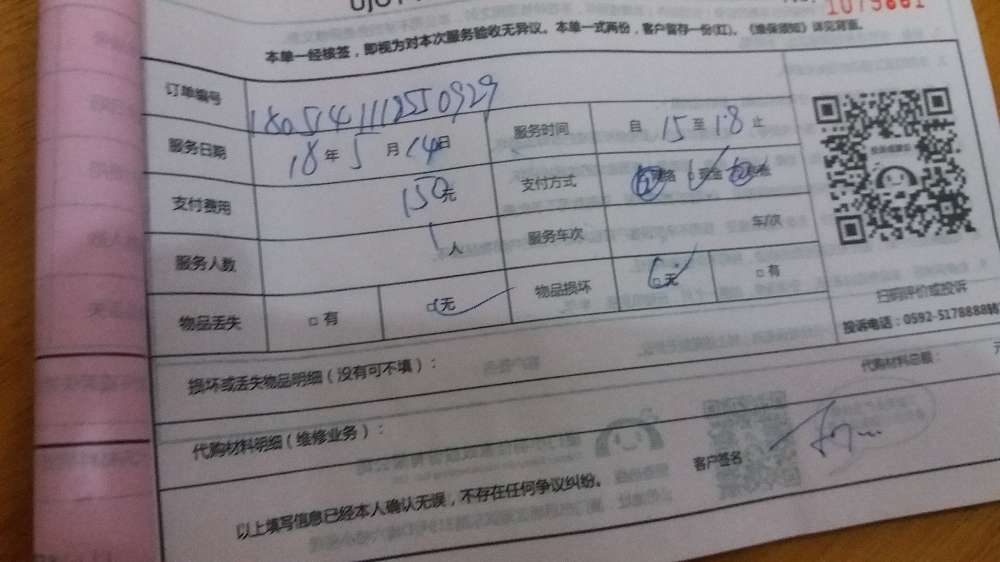 1079881
本单一经核签，即视为对本次服务验收无异议。本单一式两份，客户留存一份(红)。《维保须知》详见背面。
订单编号 180514111250929
服务日期 18年5月14日 服务时间 自 15 至 18 止
支付费用 150元 支付方式 现金
服务人数 1人 服务车次 车/次
物品丢失 □有 □无 物品损坏 □无 □有
扫码评价或投诉
投诉电话：0592-5178888转
损坏或丢失物品明细（没有可不填）：
代购材料总额： 元
代购材料明细（维修业务）：
客户签名：
以上填写信息已经本人确认无误，不存在任何争议纠纷。